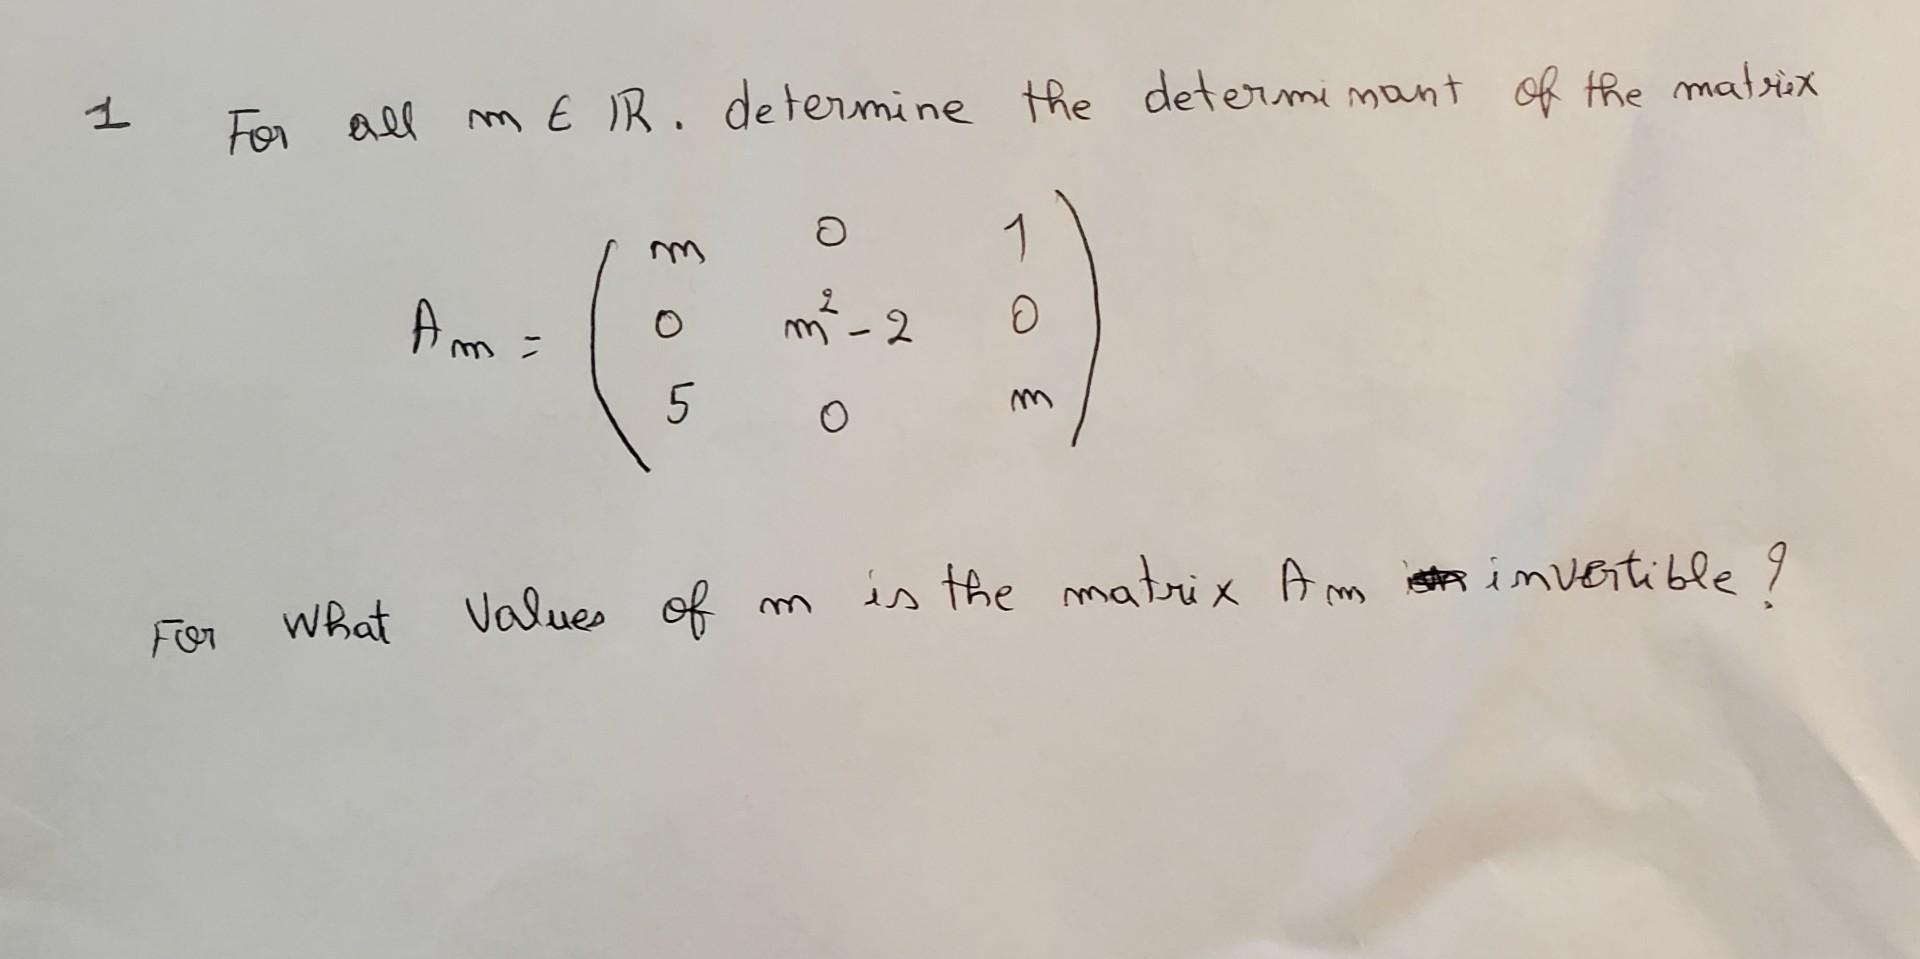 1 For all m ∈ ℝ. determine the determinant of the matrix
m 0 1
Am = 0 m² - 2 0
5 0 m
For what values of m is the matrix Am invertible?